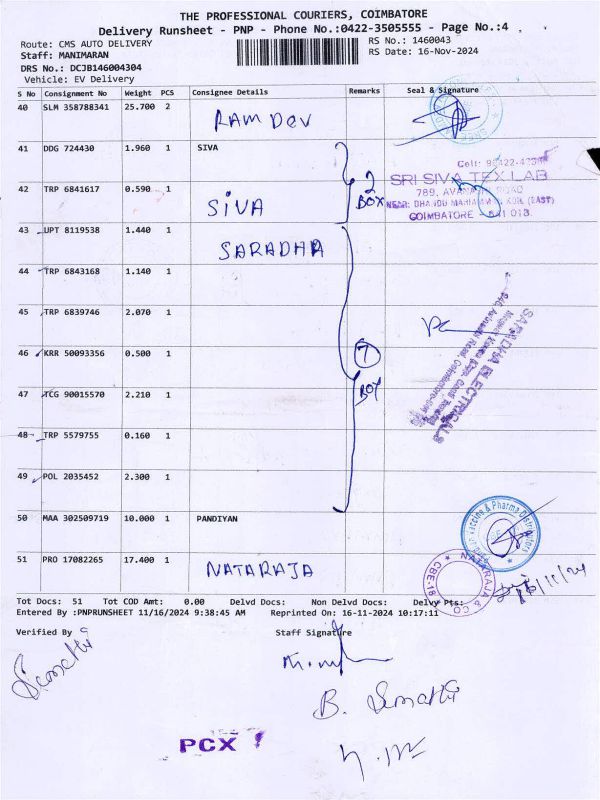 THE PROFESSIONAL COURIERS, COIMBATORE
Delivery Runsheet - PNP - Phone No.:0422-3505555 - Page No.:4
Route: CMS AUTO DELIVERY RS No.: 1460043
Staff: MANIMARAN RS Date: 16-Nov-2024
DRS No.: DCJB146004304
Vehicle: EV Delivery
S No Consignment No Weight PCS Consignee Details Remarks Seal & Signature
40 SLM 358788341 25.700 2 RAM DEV
41 DDG 724430 1.960 1 SIVA
SRI SIVA TEX LAB
42 TRP 6841617 0.590 1 SIVA 2 BOX
COIMBATORE - 641 018.
43 UPT 8119538 1.440 1 SARADHA
44 TRP 6843168 1.140 1
45 TRP 6839746 2.070 1
SARADHA ELECTRICALS
46 KRR 50093356 0.500 1 7
47 TCG 90015570 2.210 1 BOX
48 TRP 5579755 0.160 1
49 POL 2035452 2.300 1
50 MAA 302509719 10.000 1 PANDIYAN
Vaccine & Pharma Distributors
51 PRO 17082265 17.400 1 NATARAJA
NATARAJA & CO
CBE-18
16/11/24
Tot Docs: 51 Tot COD Amt: 0.00 Delvd Docs: Non Delvd Docs: Delvy Pts:
Entered By :PNPRUNSHEET 11/16/2024 9:38:45 AM Reprinted On: 16-11-2024 10:17:11
Verified By Staff Signature
PCX